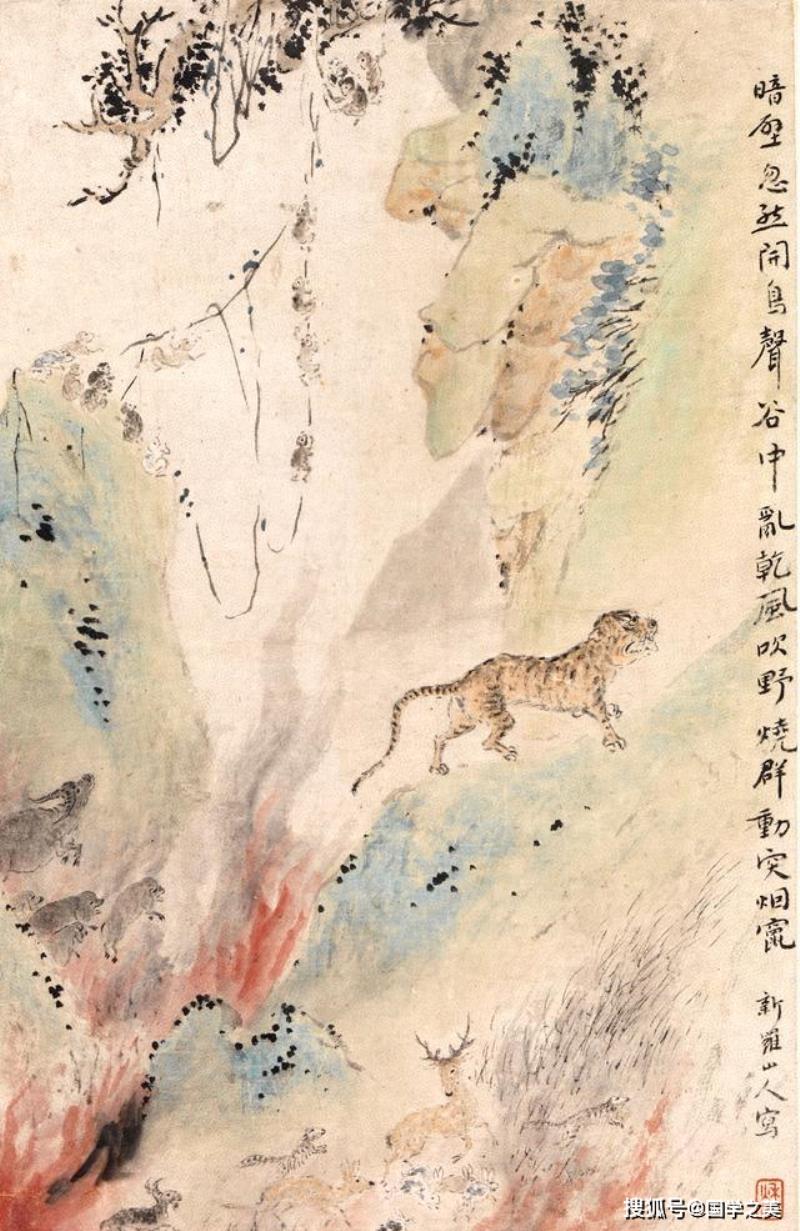 暗壁忽然開鳥聲谷中亂乾風吹野燒群動突烟竄 新羅山人寫
搜狐号@国学之美